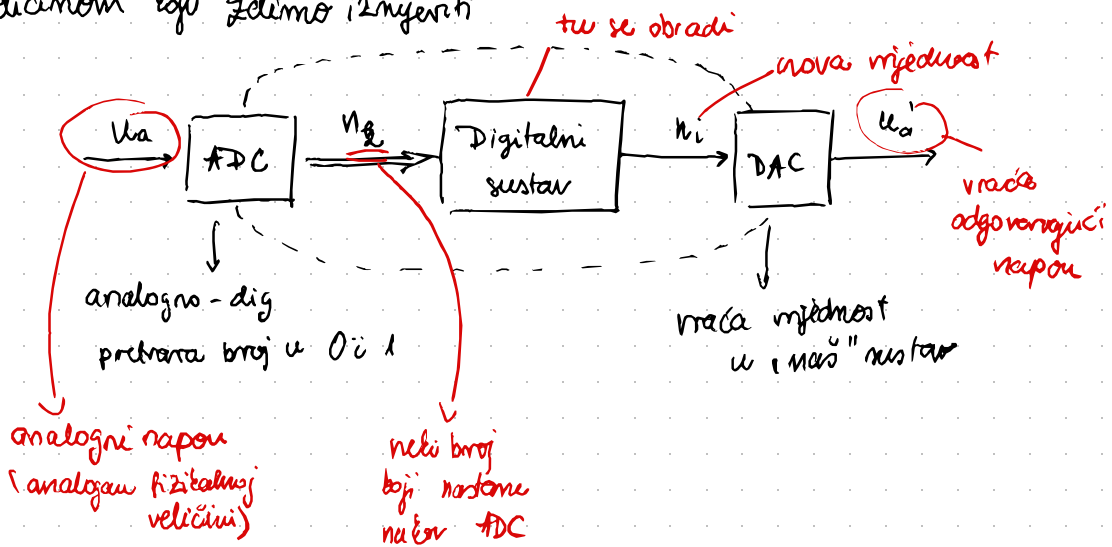 koju želimo izmjeriti
tu se obradi
nova vrijednost
Ua
ADC
Digitalni
sustav
ni
DAC
ua'
vraća
odgovarajući
napon
analogno-dig
pretvara broj u 0 i 1
vraća vrijednost
u "naš" sustav
analogni napon
(analogan fizikalnoj
veličini)
neki broj
koji nastane
nakon ADC